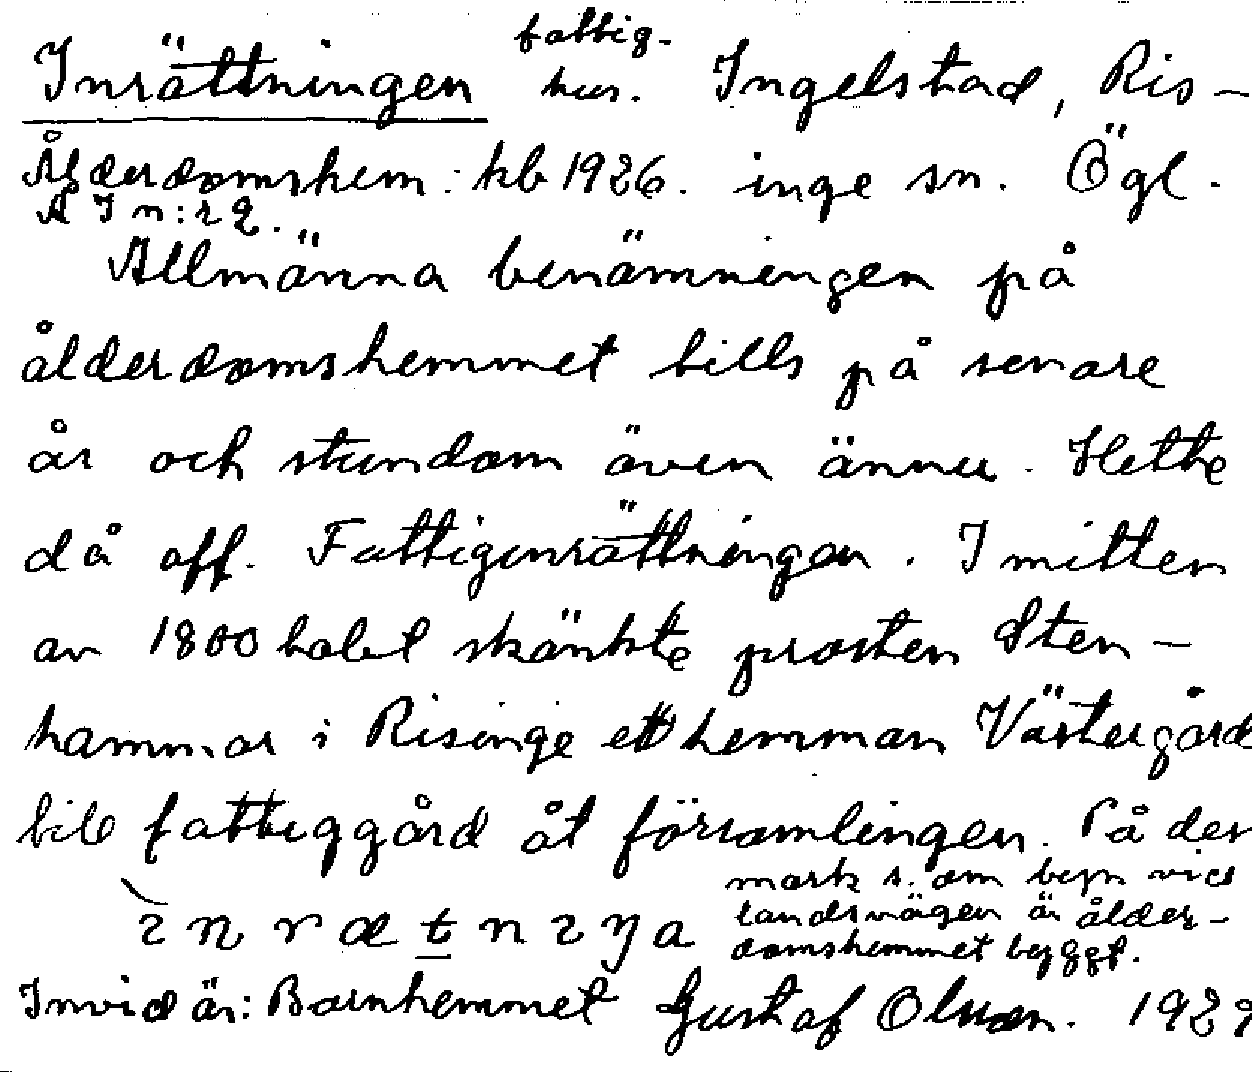 Inrättningen fattig-
hus. Ingelstad, Ris-
Ålderdomshem: kb 1926. inge sn. Ögl.
Å I n:r 2.
Allmänna benämningen på
ålderdomshemmet tills på senare
år och stundom även ännu. Hette
då off. Fattiginrättningen. I mitten
av 1800 talet skänkte prosten Sten-
hammar i Risinge ett hemman Västergård
till fattiggård åt församlingen. På den
mark s. om byn vid
landsvägen är ålder-
domshemmet byggt.
ı n r æ t n ı ŋ a
Invid är: Barnhemmet Gustaf Olsson. 1929